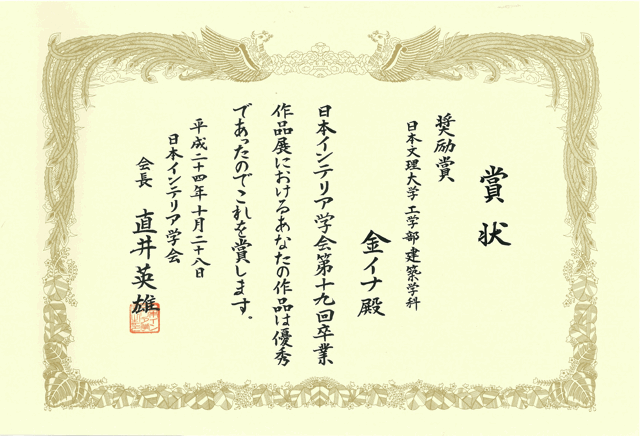 賞状
奨励賞
日本文理大学工学部建築学科
金イナ殿
日本インテリア学会第十九回卒業
作品展におけるあなたの作品は優秀
であったのでこれを賞します。
平成二十四年十月二十八日
日本インテリア学会
会長 直井英雄